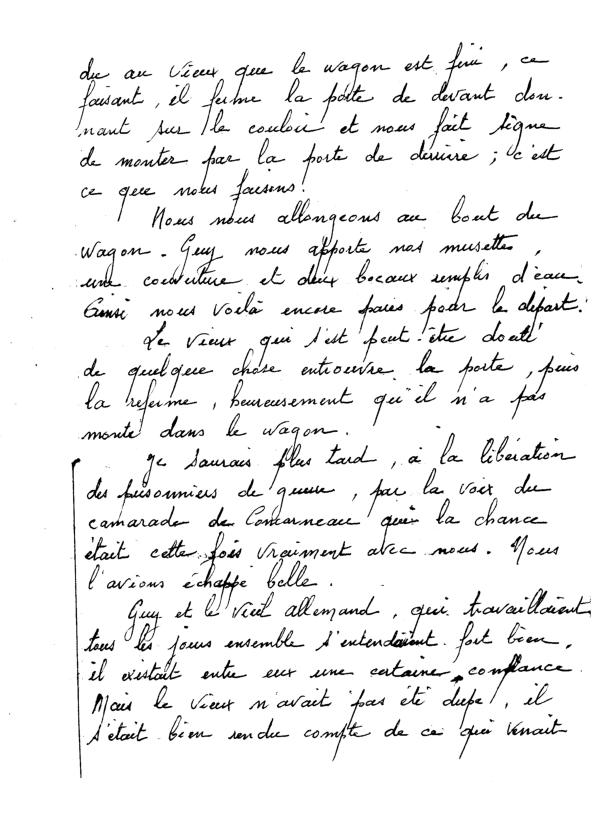 du au vieux que le wagon est fini, ce
faisant, il ferme la porte de devant don-
nant sur le couloir et nous fait signe
de monter par la porte de derrière ; c'est
ce que nous faisons.
Nous nous allongeons au bout du
wagon. Guy nous apporte nos musettes,
une couverture et deux bocaux remplis d'eau.
Ainsi nous voilà encore parés pour le départ.
Le vieux qui s'est peut-être douté
de quelque chose entrouvre la porte, puis
la referme, heureusement qu'il n'a pas
monté dans le wagon.
Je saurais plus tard, à la libération
des prisonniers de guerre, par la voix du
camarade de Concarneau que la chance
était cette fois vraiment avec nous. Nous
l'avions échappé belle.
Guy et le vieil allemand, qui travaillaient
tous les jours ensemble s'entendaient fort bien,
il existait entre eux une certaine confiance.
Mais le vieux n'avait pas été dupe, il
s'était bien rendu compte de ce qui venait